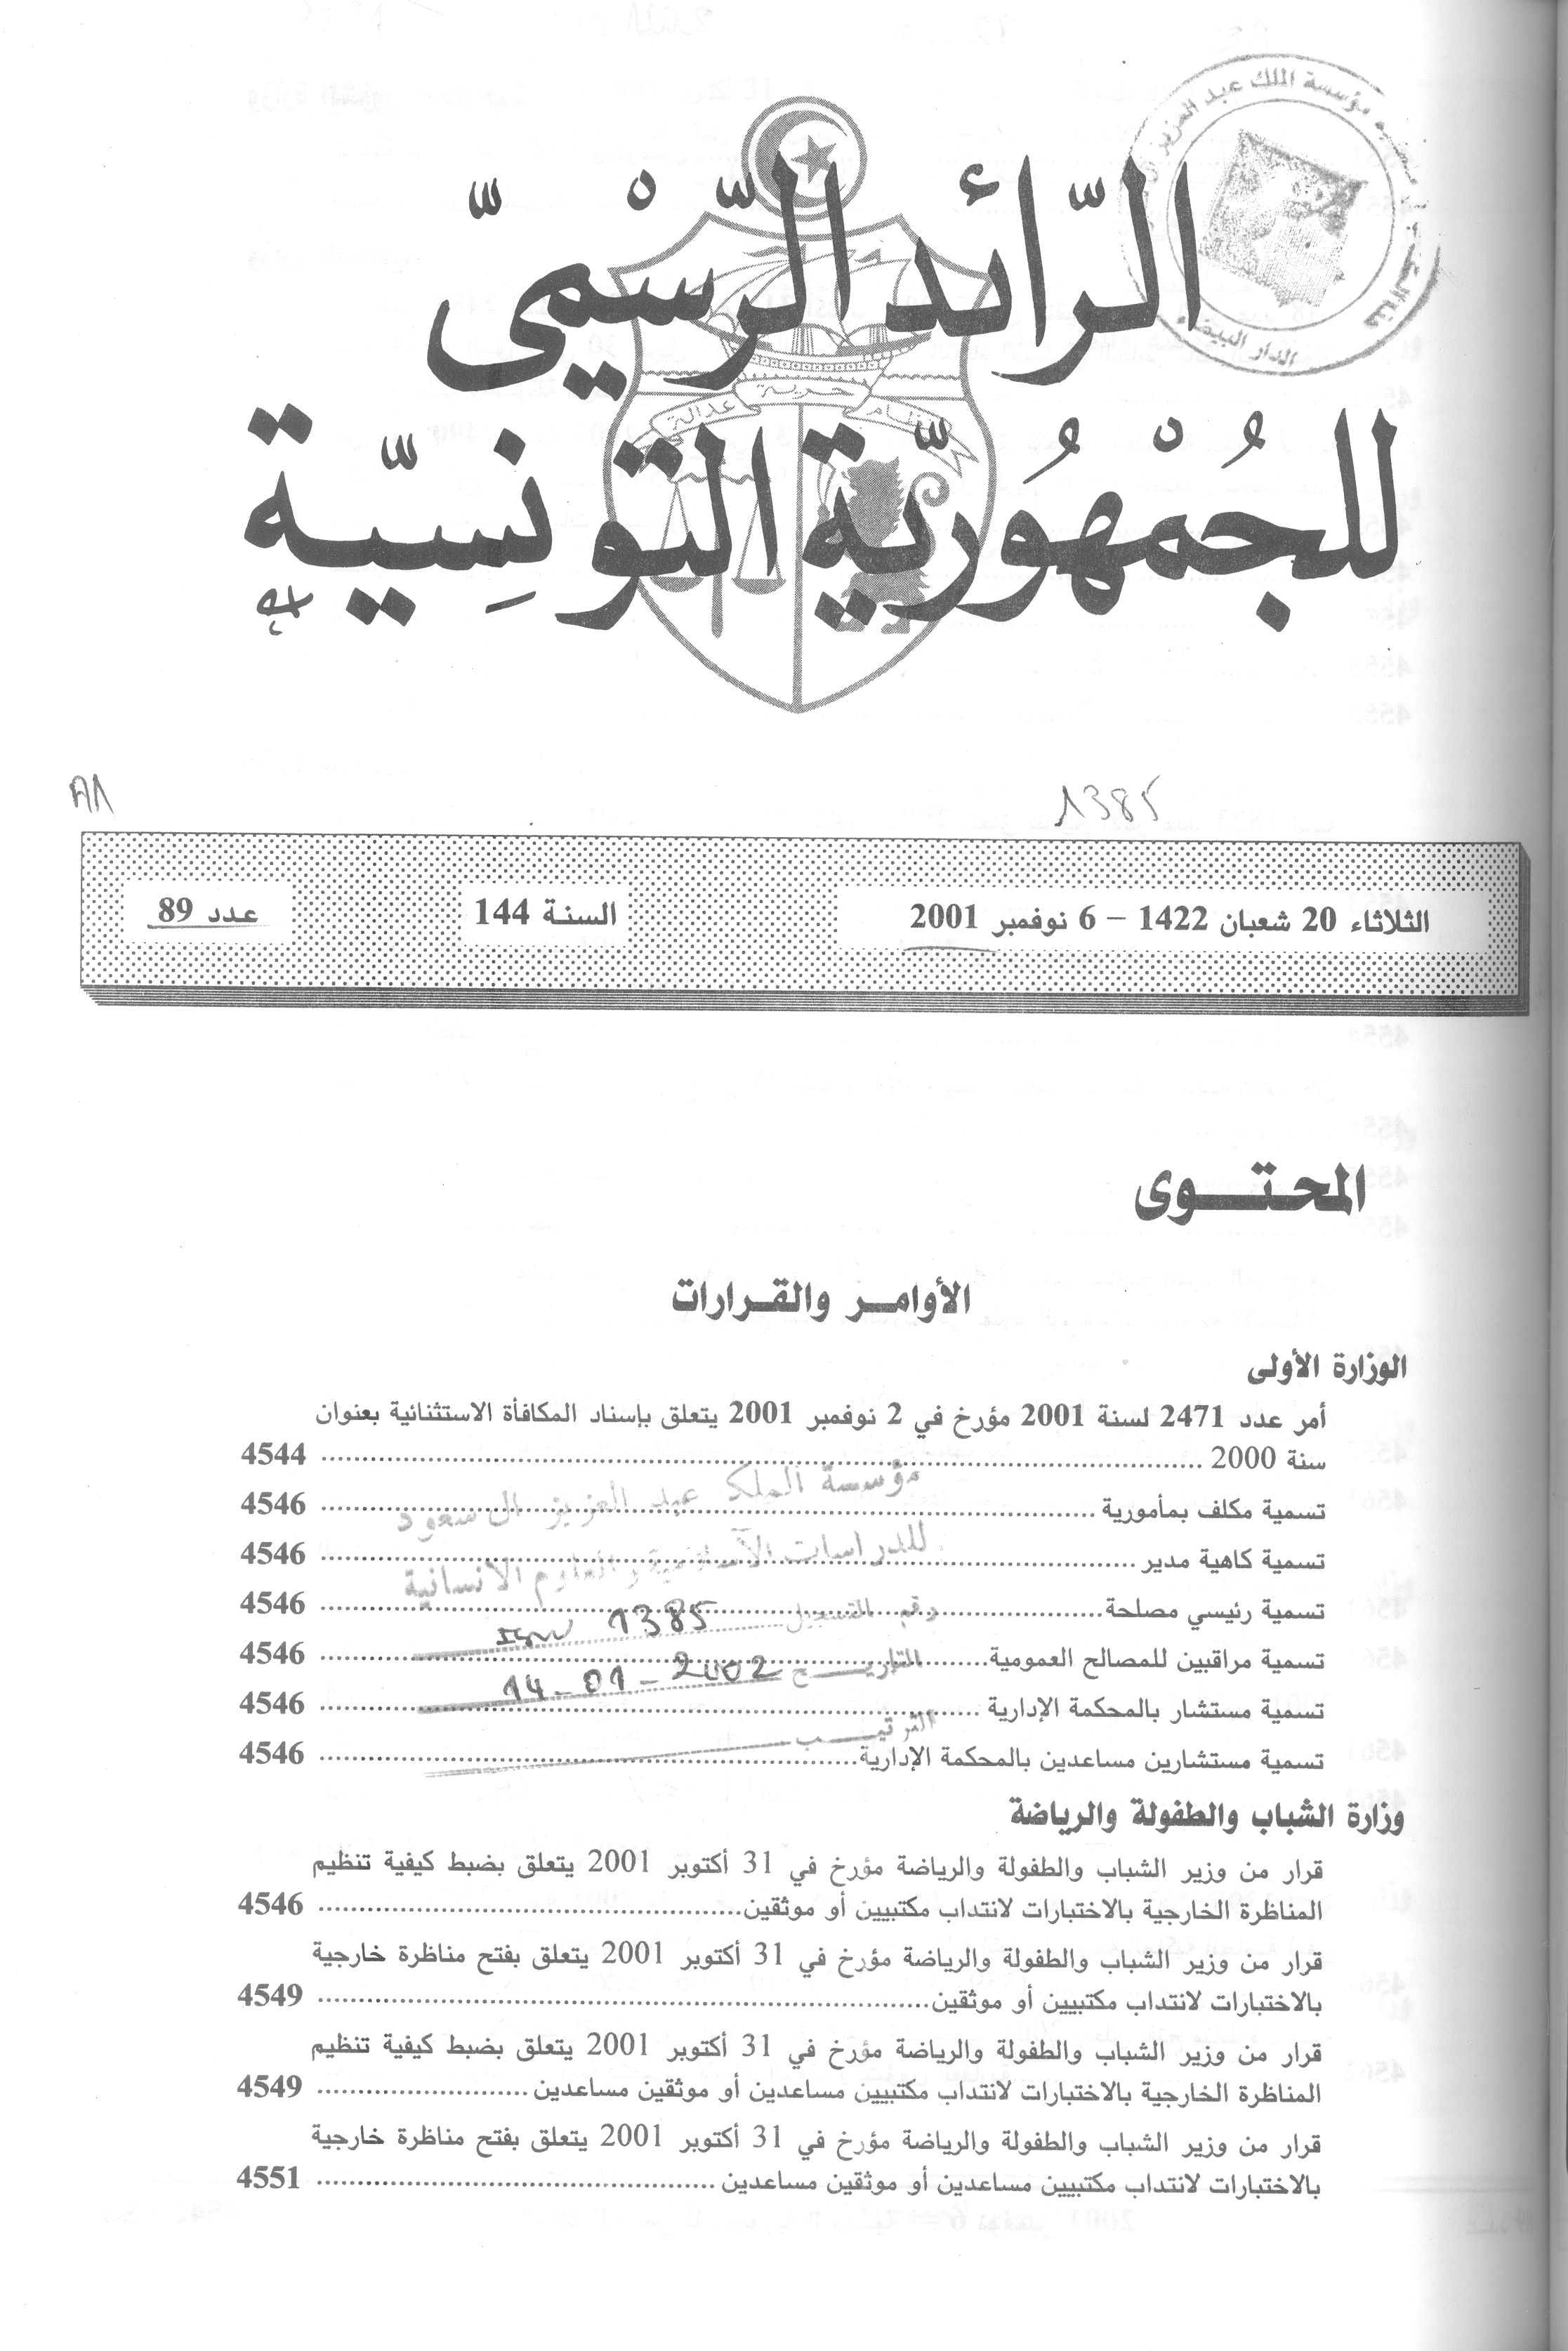 الرّائد الرّسْميّ
للجُمْهُوريّة التّونِسيّة
نظام حرية عدالة
مؤسسة الملك عبد العزيز
الدار البيضاء
A1
1385
الثلاثاء 20 شعبان 1422 – 6 نوفمبر 2001
السنة 144
عدد 89
المحتــوى
الأوامـر والقـرارات
الوزارة الأولى
أمر عدد 2471 لسنة 2001 مؤرخ في 2 نوفمبر 2001 يتعلق بإسناد المكافأة الاستثنائية بعنوان
سنة 2000 ........ 4544
تسمية مكلف بمأمورية ........ 4546
تسمية كاهية مدير ........ 4546
تسمية رئيسي مصلحة ........ 4546
تسمية مراقبين للمصالح العمومية ........ 4546
تسمية مستشار بالمحكمة الإدارية ........ 4546
تسمية مستشارين مساعدين بالمحكمة الإدارية ........ 4546
مؤسسة الملك عبد العزيز ال سعود
للدراسات الاسلامية والعلوم الانسانية
رقم التسجيل 1385
التاريـخ 14-01-2002
الترتيـب
وزارة الشباب والطفولة والرياضة
قرار من وزير الشباب والطفولة والرياضة مؤرخ في 31 أكتوبر 2001 يتعلق بضبط كيفية تنظيم
المناظرة الخارجية بالاختبارات لانتداب مكتبيين أو موثقين ........ 4546
قرار من وزير الشباب والطفولة والرياضة مؤرخ في 31 أكتوبر 2001 يتعلق بفتح مناظرة خارجية
بالاختبارات لانتداب مكتبيين أو موثقين ........ 4549
قرار من وزير الشباب والطفولة والرياضة مؤرخ في 31 أكتوبر 2001 يتعلق بضبط كيفية تنظيم
المناظرة الخارجية بالاختبارات لانتداب مكتبيين مساعدين أو موثقين مساعدين ........ 4549
قرار من وزير الشباب والطفولة والرياضة مؤرخ في 31 أكتوبر 2001 يتعلق بفتح مناظرة خارجية
بالاختبارات لانتداب مكتبيين مساعدين أو موثقين مساعدين ........ 4551